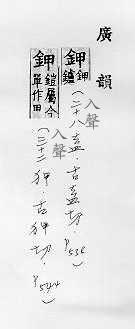 廣韻
鉀鉀鑪 入聲 (二十八)盍.古盍切.P536
鉀鎧屬今單作甲 入聲 (三十二)狎.古狎切.P544